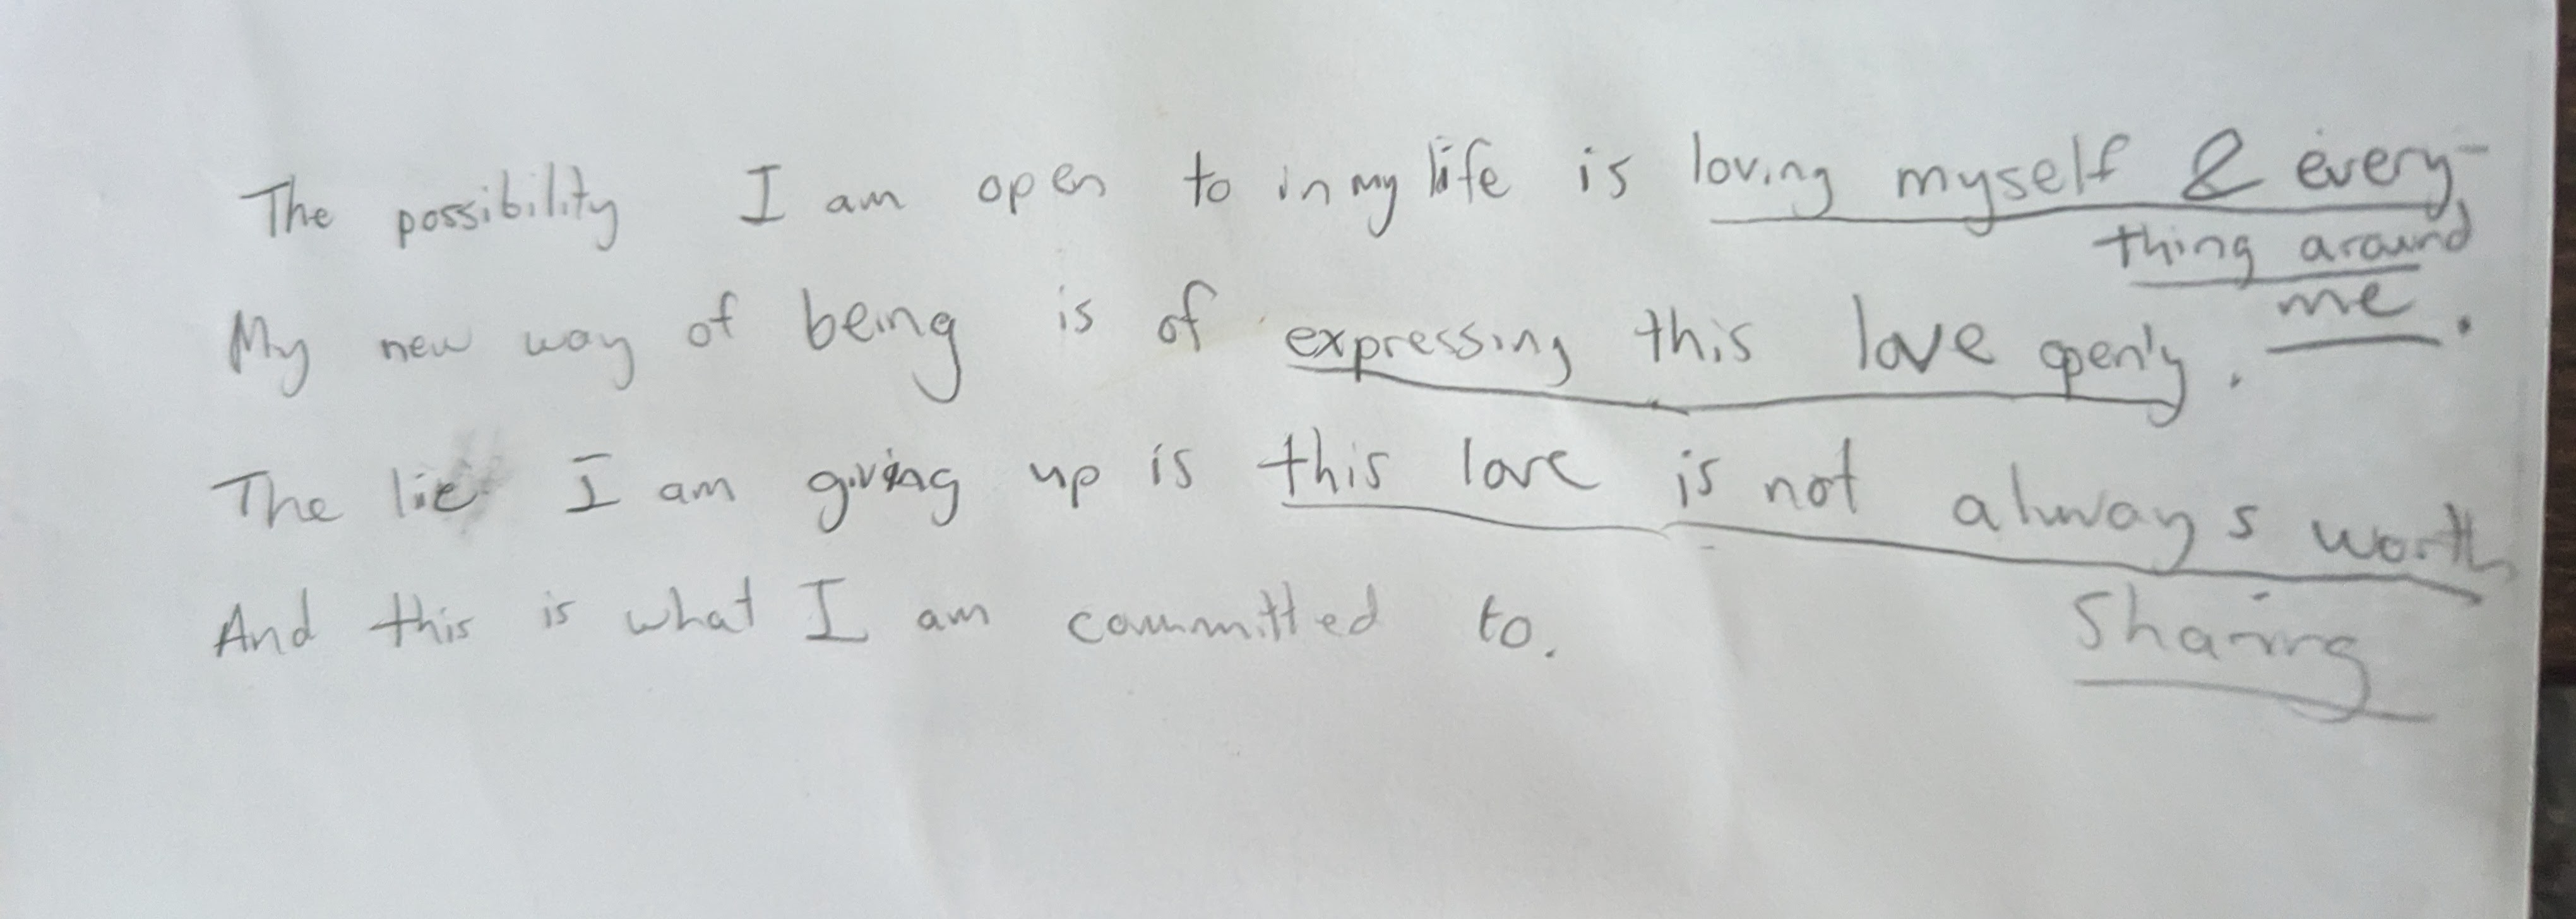 The possibility I am open to in my life is loving myself & every-
thing around
me.
My new way of being is of expressing this love openly.
The lie I am giving up is this love is not always worth
sharing
And this is what I am committed to.